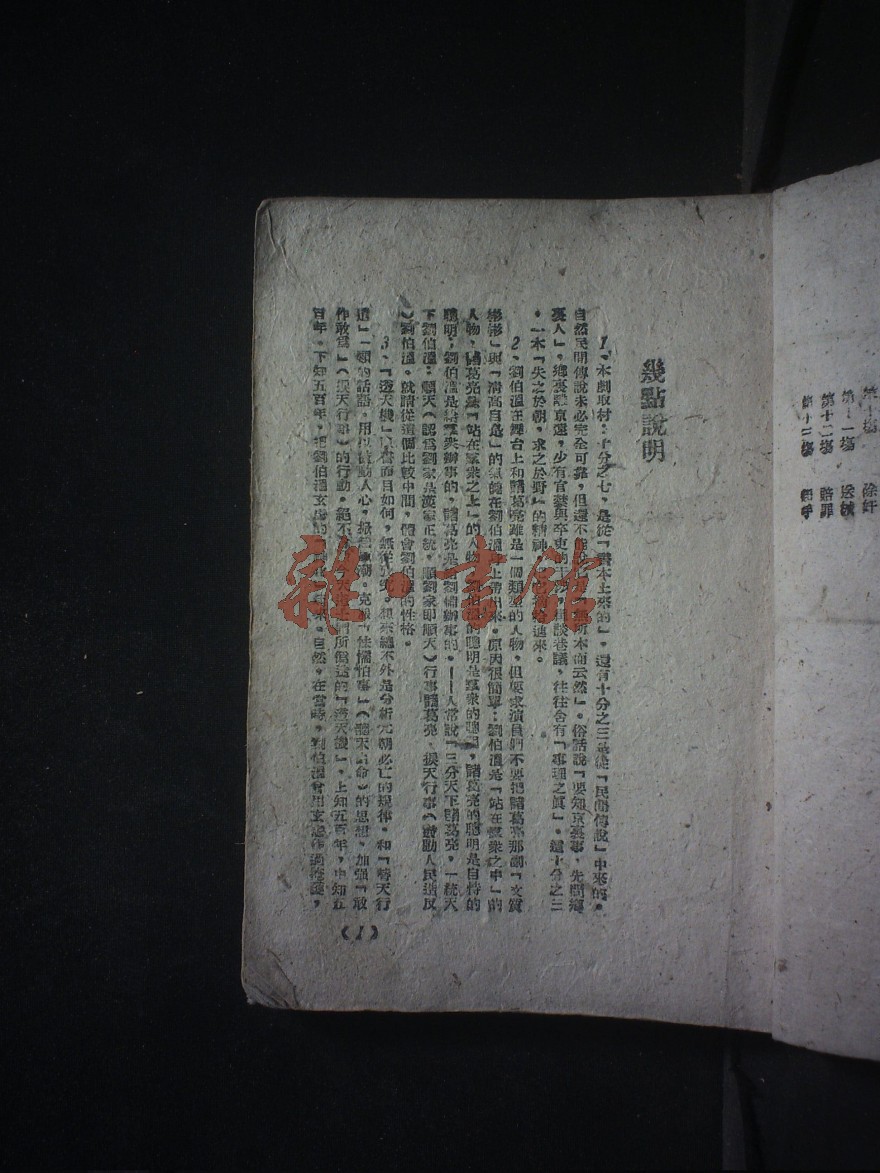 第十場
第十一場
第十二場 賠罪
第十三場
幾點說明
1、本劇取材:十分之七,是從「書本上來的」,還有十分之三是從「民間傳說」中來的。
自然民間傳說未必完全可靠,但還不能說此無所本而云然」。俗話說「要知京裏事,先問鄉
裏人」,鄉裏離京遠,少有官禁與卒吏的干涉,巷議,往往含有「事理之眞」。這十分之三
。一本「失之於朝,求之於野」的精神,也進來。
2、劉伯溫在舞台上和諸葛亮雖是一個類型的人物,但要求演員們不要把諸葛亮那副「文質
彬彬」與「清高自是」的氣魄在劉伯溫身上帶出來。原因很簡單:劉伯溫是「站在羣衆之中」的
人物,諸葛亮是「站在羣衆之上」的人物。劉伯溫的聰明是羣衆的聰明,諸葛亮的聰明是自恃的
聰明;劉伯溫是給羣衆辦事的,諸葛亮是給劉備辦事的。——人常說「三分天下諸葛亮,一統天
下劉伯溫;順天(認爲劉家是漢家正統,順劉家即順天)行事諸葛亮,換天行事(鼓動人民造反
)劉伯溫。就請從這個比較中間,體會劉伯溫的性格。
3、「透天機」一書面目如何,無從。想來總不外是分析元朝必亡的規律,和「替天行
道」一類的話語,用以鼓動人心,克服「性懦怕事」(聽天由命)的思想,加强「敢
作敢爲」(換天行事)的行動。絕不們所僞造的「透天機」,上知五百年,中知五
百年,下知五百年,把劉伯溫玄虛的來。自然,在當時,劉伯溫會用玄虛作過掩護,
(1)
雜·書館